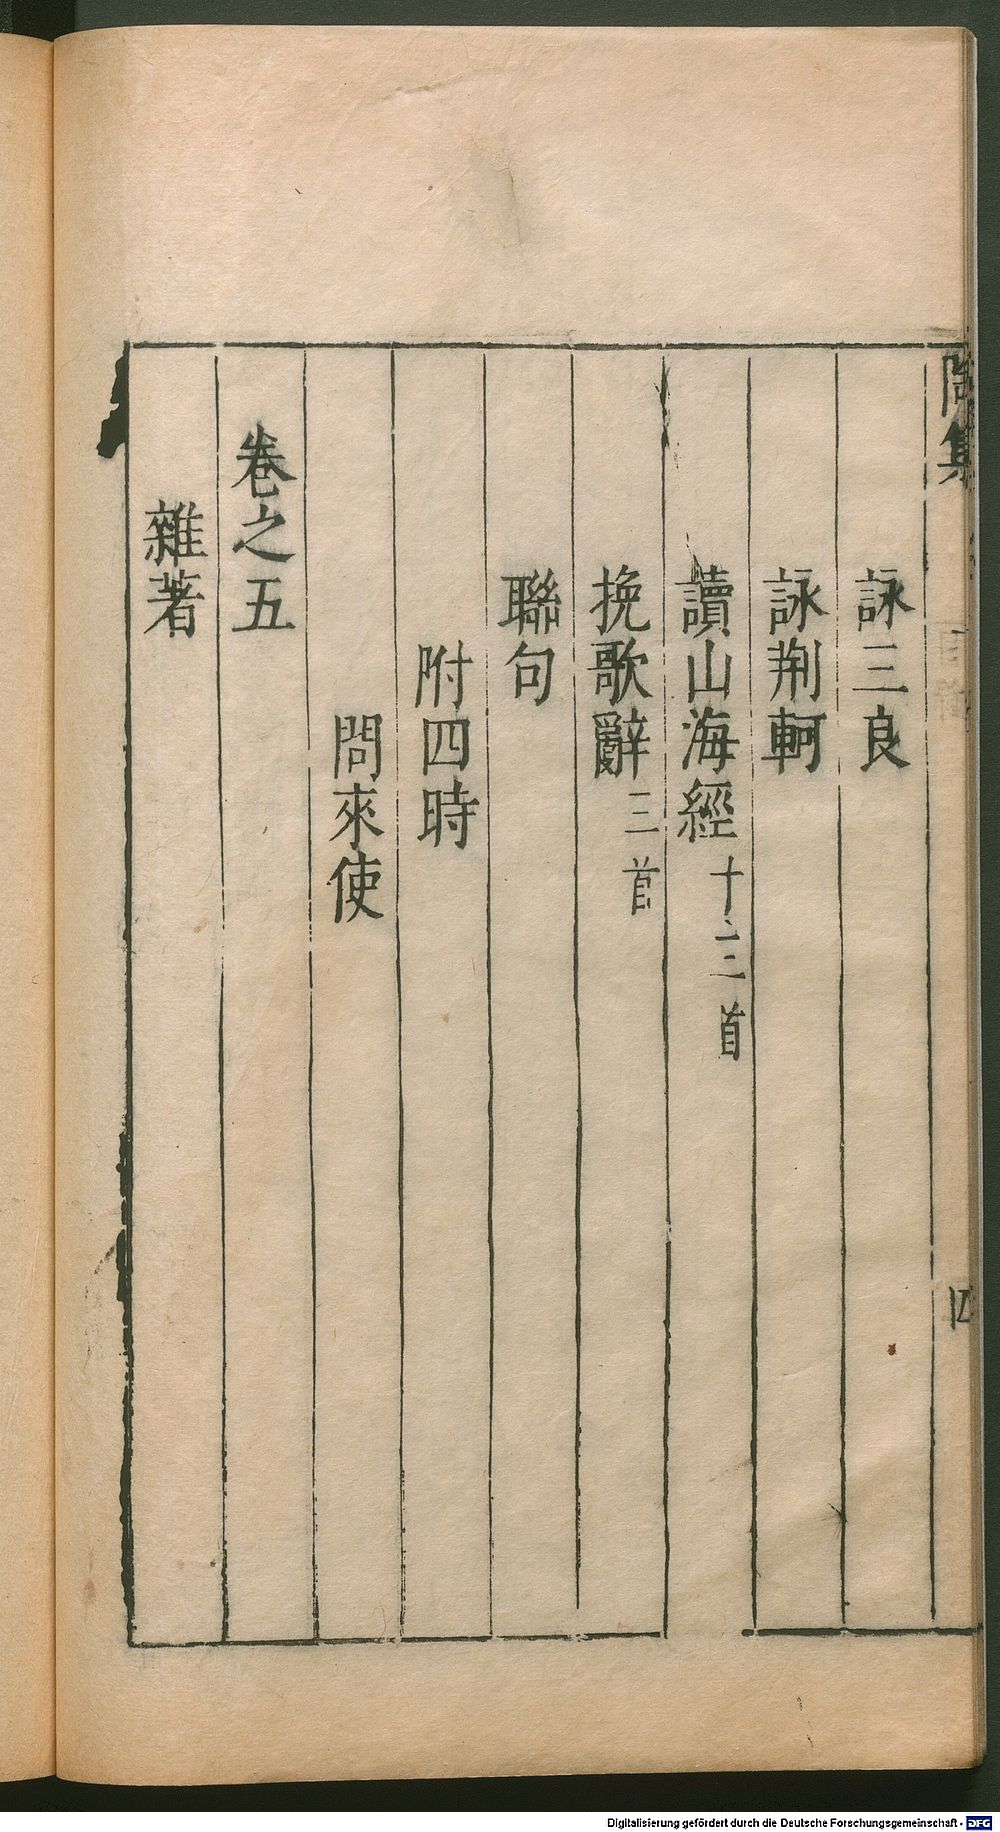 陶集
四
詠三良
詠荆軻
讀山海經十三首
挽歌辭三首
聯句
附四時
問來使
卷之五
雜著
Digitalisierung gefördert durch die Deutsche Forschungsgemeinschaft - DFG